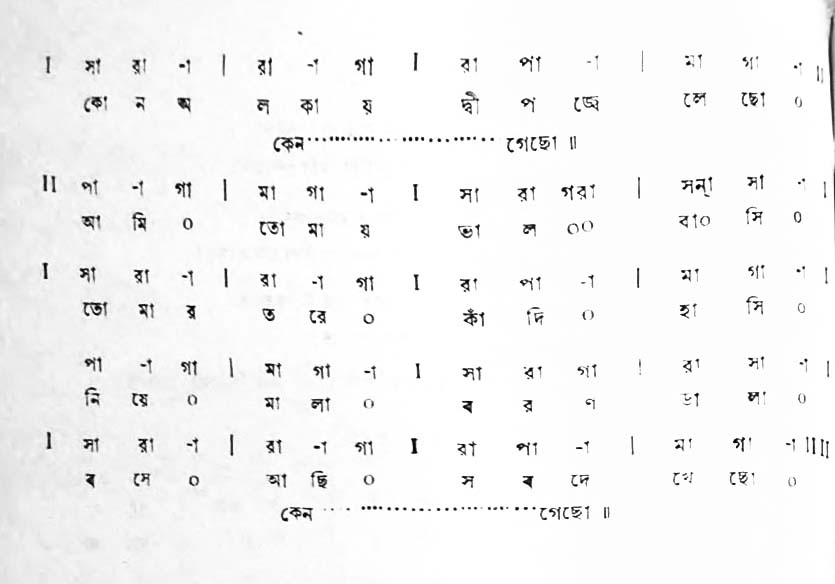 I সা রা -া | রা -া গা I রা পা -া | মা গা -া II
কো ন অ ল কা য় দ্বী প জ্বে লে ছো ০
কেন····························গেছো ॥
II পা -া গা | মা গা -া I সা রা গরা | সন্‌া সা -া I
আ মি ০ তো মা য় ভা ল ০০ বা০ সি ০
I সা রা -া | রা -া গা I রা পা -া | মা গা -া I
তো মা র ত রে ০ কাঁ দি ০ হা সি ০
পা -া গা | মা গা -া I সা রা গা | রা সা -া I
নি য়ে ০ মা লা ০ ব র ণ ডা লা ০
I সা রা -া | রা -া গা I রা পা -া | মা গা -া IIII
ব সে ০ আ ছি ০ স ব দে খে ছো ০
কেন····························গেছো ॥